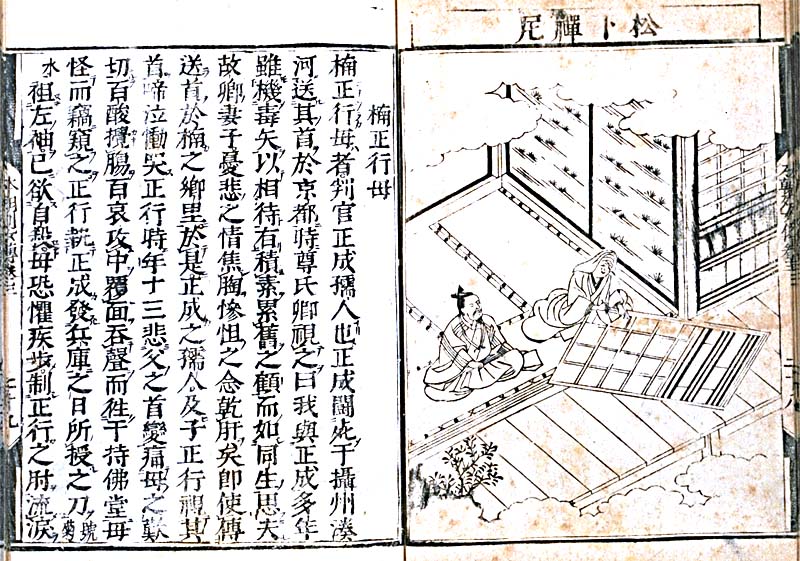 松下禪尼
楠正行母
楠正行母者判官正成孺人也正成鬪死于攝州湊
河送其首於京都時尊氏卿視之曰我與正成多年
雖機毒矢以相待右積素累舊之顧而如同生思夫
故卿妻子憂悲之情焦胸慘怛之念乾肝矣卽使傳
送首於楠之鄉里於是正成之孺人及子正行視其
首啼泣慟哭正行時年十三悲父之首變痛母之歎
切百酸攪腸百哀攻中覆面吞聲而徃于持佛堂母
怪而竊窺之正行執正成發兵庫之日所授之刀號菊
水祖左袖已欲自殺母恐懼疾步制正行之肘流淚